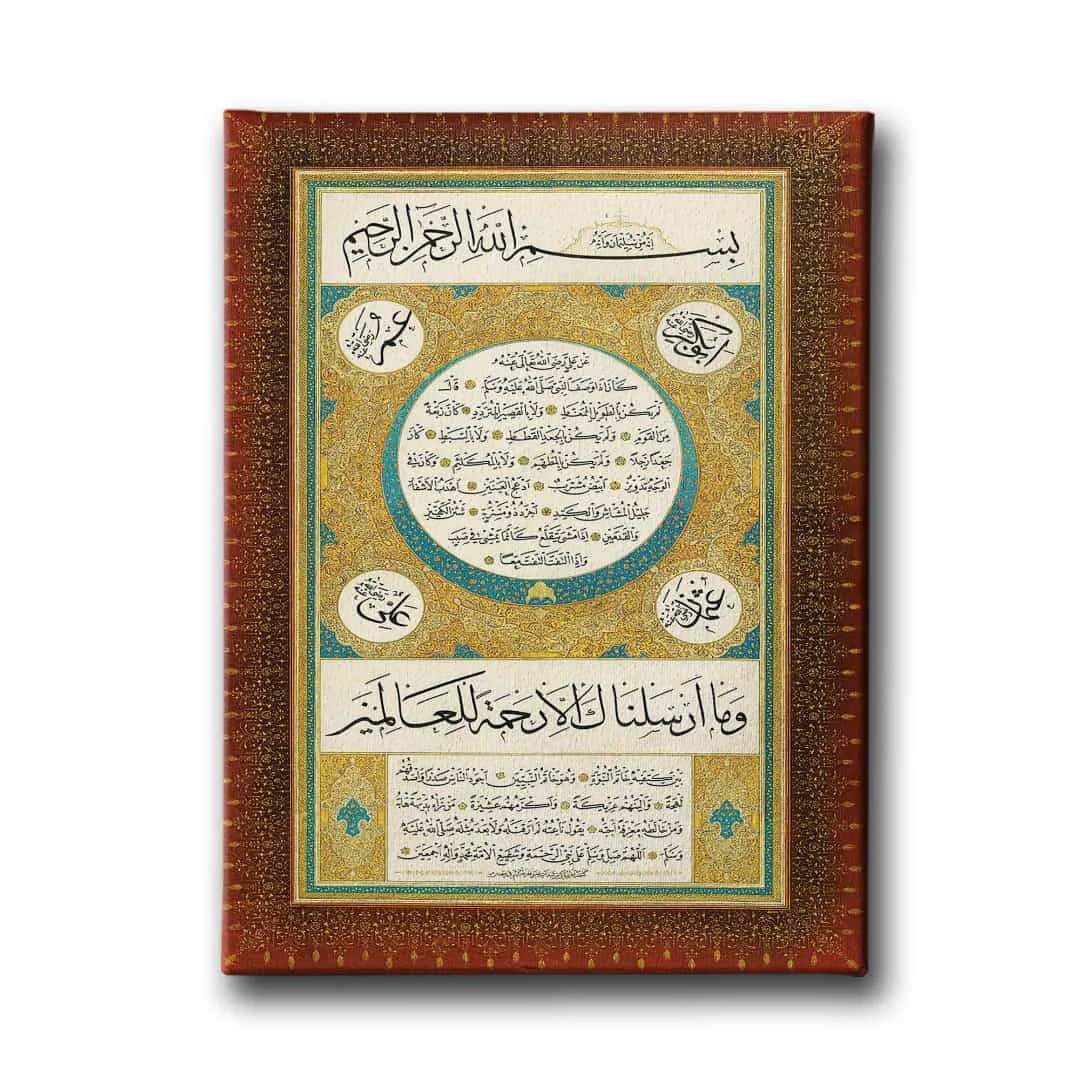 بسم الله الرحمن الرحيم
إنه من سليمان وإنه
أبو بكر رضي الله عنه
عمر رضي الله عنه
عن علي رضي الله تعالى عنه
كان إذا وصف النبي صلى الله عليه وسلم قال
لم يكن بالطويل الممغط ولا بالقصير المتردد كان ربعة
من القوم ولم يكن بالجعد القطط ولا بالسبط كان
جعدا رجلا ولم يكن بالمطهم ولا بالمكلثم وكان في
الوجه تدوير أبيض مشرب أدعج العينين أهدب الأشفار
جليل المشاش والكتد أجرد ذو مسربة شثن الكفين
والقدمين إذا مشى يتقلع كأنما يمشي في صبب
وإذا التفت التفت معا
عثمان رضي الله عنه
علي رضي الله عنه
وما أرسلناك إلا رحمة للعالمين
بين كتفيه خاتم النبوة وهو خاتم النبيين أجود الناس صدرا وأصدقهم
لهجة وألينهم عريكة وأكرمهم عشيرة من رآه بديهة هابه
ومن خالطه معرفة أحبه يقول ناعته لم أر قبله ولا بعده مثله صلى الله عليه
وسلم اللهم صل وسلم على نبي الرحمة وشفيع الأمة محمد وآله أجمعين